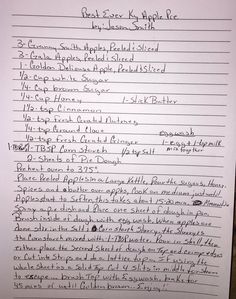 Best Ever Ky Apple Pie
by: Jason Smith
3- Granny Smith Apples, Peeled & Sliced
3- Gala Apples, Peeled & Sliced
1- Golden Delicious Apple, Peeled & Sliced
1/2-cup white Sugar
1/4-cup brown Sugar
1/4-Cup Honey 1-Stick Butter
1 1/2-tsp Cinnamon
1/4-tsp Fresh Grated Nutmeg
1/4-tsp Ground Clove eggwash
1/4-tsp Fresh Grated Ginger 1-egg & 1-tsp milk
1-TBSP Corn Starch 1/2 tsp Salt mix together
2-Sheets of Pie Dough
Preheat oven to 375°
Place Peeled Apples in a Large Kettle, Pour the Sugars, Honey,
Spices and butter over apples, Cook on medium just until
Apples start to Soften, this takes about 15-20 mins
Spray a pie dish and Place one sheet of dough in pan.
Brush inside of dough with egg wash. When apples are
done stir in the Salt & Corn starch
the Corn starch mixed with Pour in Shell, then
either place the Second sheet of dough on Top and crimp edges
or Cut into Strips and do a lattice top. If using the
whole sheet as a Solid Top Cut 4 Slits in middle for steam
to escape. Brush Top with Eggwash, bake for
45 mins or until Golden brown. Enjoy!